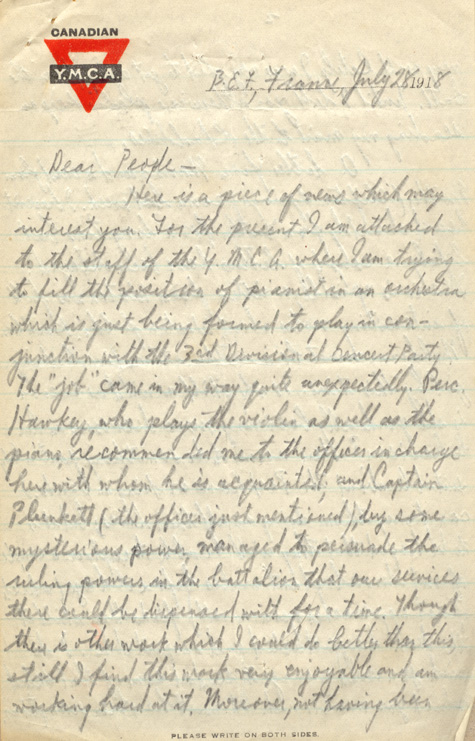 CANADIAN
Y.M.C.A.
B.E.F., France, July 28 1918
Dear People —
Here is a piece of news which may
interest you. For the present I am attached
to the staff of the Y.M.C.A. where I am trying
to fill the position of pianist in an orchestra
which is just being formed to play in con-
junction with the 3rd Divisional Concert Party.
The "job" came in my way quite unexpectedly. Perc.
Hawkey, who plays the violin as well as the
piano, recommended me to the officer in charge
here with whom he is acquainted; and Captain
Plunkett (the officer just mentioned), by some
mysterious power, managed to persuade the
ruling powers in the battalion that our services
there could be dispensed with for a time. Though
there is other work which I could do better than this,
still I find this work very enjoyable and am
working hard at it. Moreover, not having been
PLEASE WRITE ON BOTH SIDES.